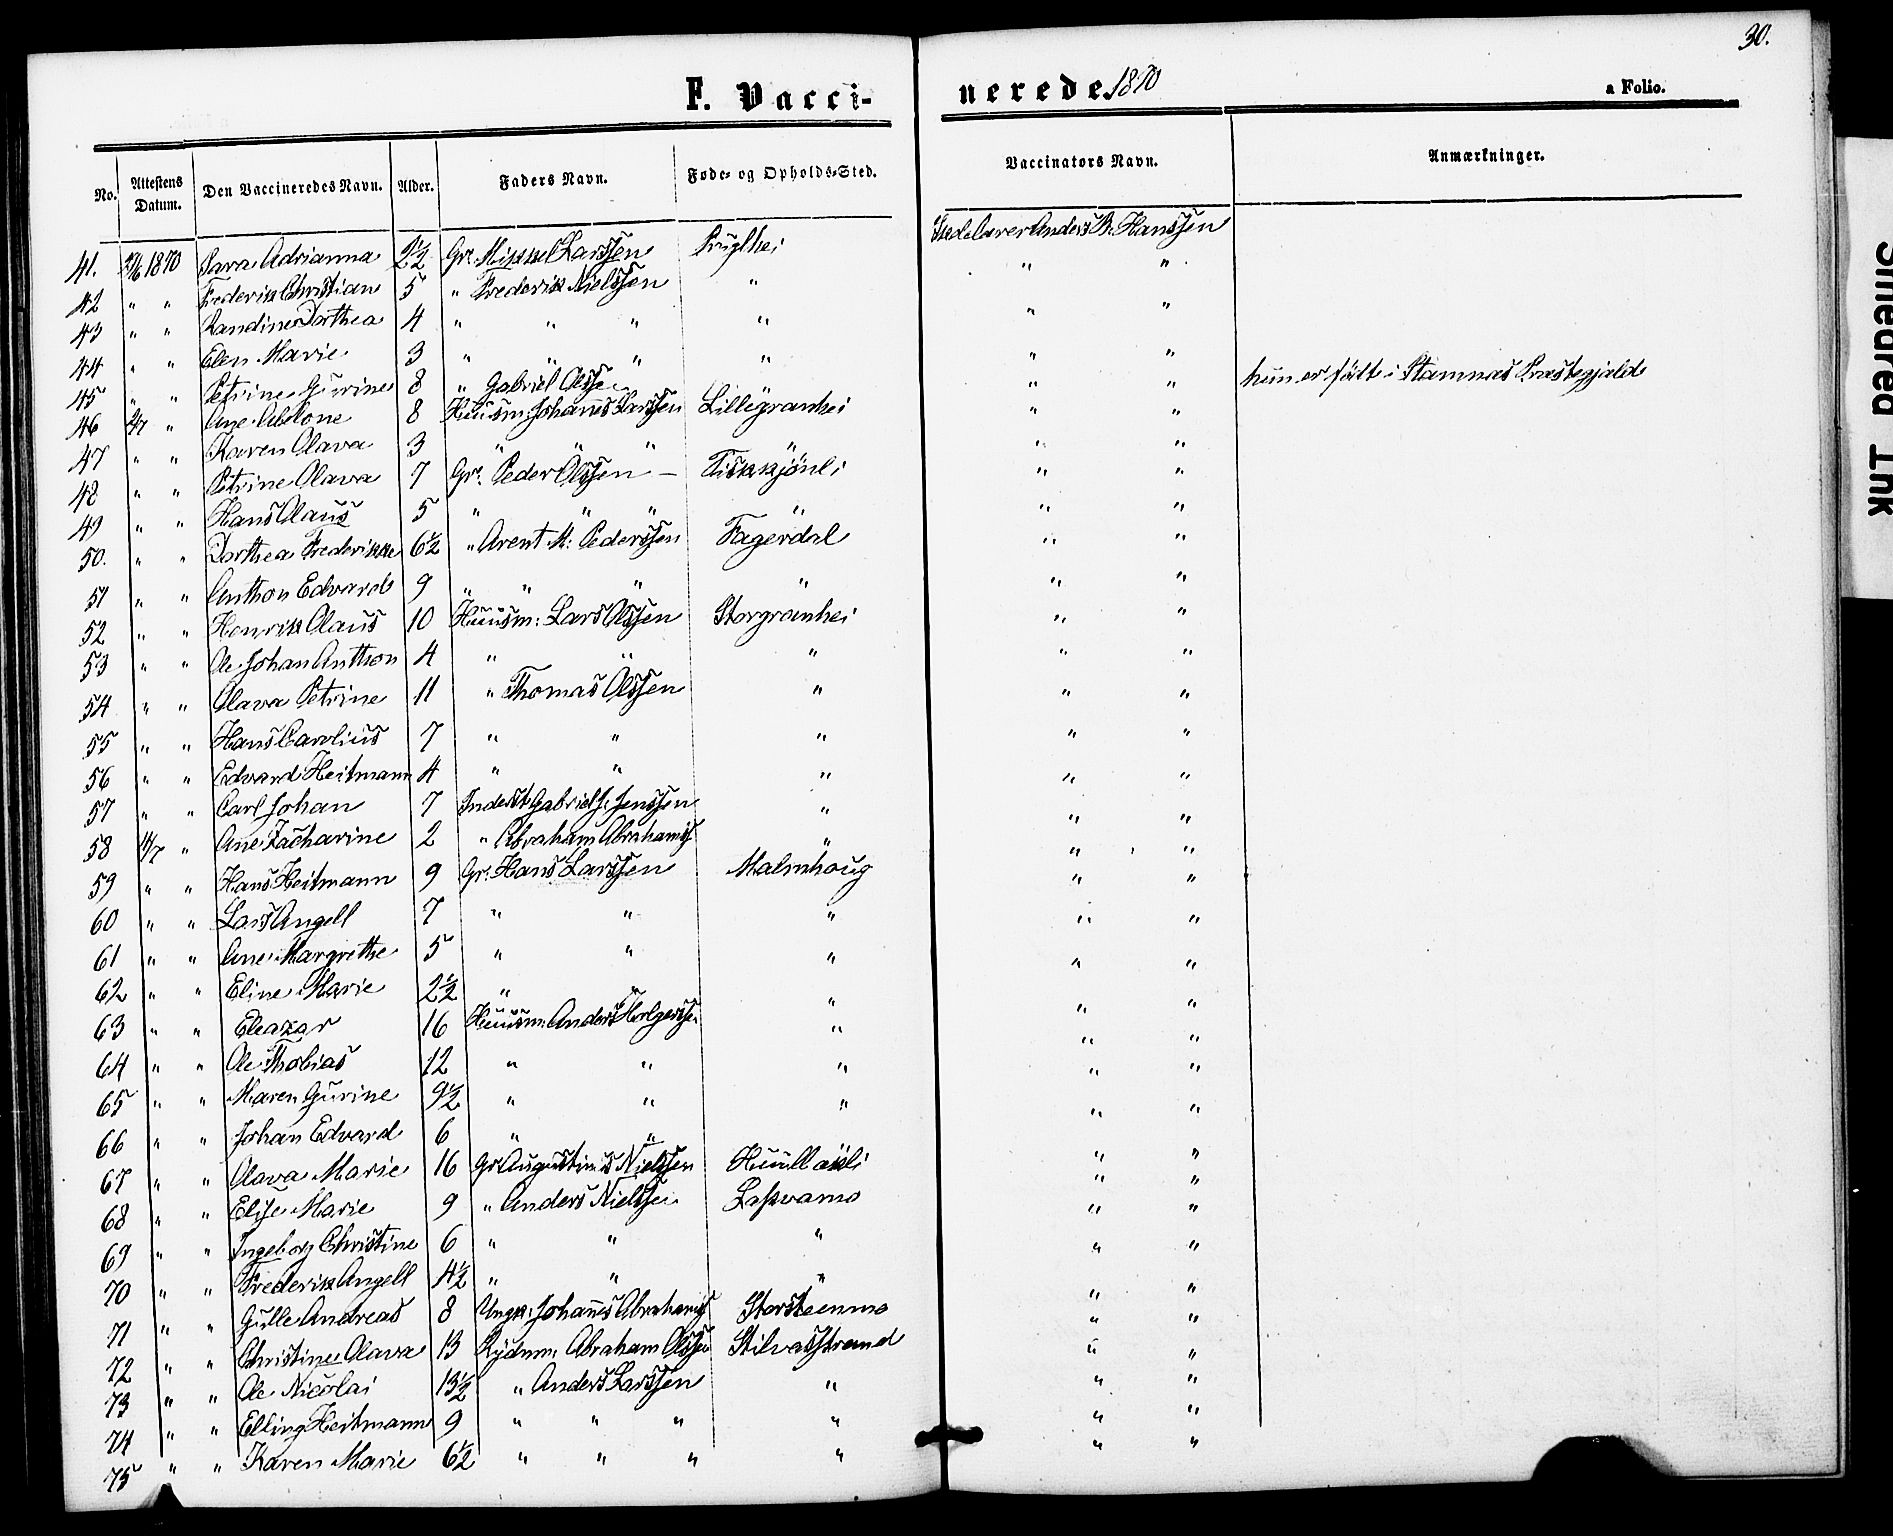 30.
F. Vaccinerede 1870 a Folio.
No. Attestens Datum. Den Vaccineredes Navn. Alder. Faders Navn. Føde- og Opholds-Sted. Vaccinators Navn. Anmærkninger.
41. 1870 Sara Adrianna 2½ Gr. Mikkel Larssen Anders B. Hanssen
42 " " Frederik Christian 5 " Frederik Nielssen " " "
43 " " Randine Dorthea 4 " " " " " "
44 " " Elen Marie 3 " " " " " "
45 " " Petrine Gurine 8 " Gabriel Olssen " " hun er født i Stamnæs Præstegjæld
46 2/7 " Ane Abelone 8 Huusm: Johannes Larssen Lillegranhei " "
47 " " Karen Olava 3 " " " " "
48 " " Petrine Olava 7 Gr. Peder Olssen — Fiskkjönli " "
49 " " Hans Olaus 5 " " " " " "
50. " " Dorthea Frederikke 6½ " Arent M: Pederssen Fagerdal " "
51 " " Anthon Edvard 9 " " " " " "
52 " " Henrik Olaus 10 Huusm: Lars Olssen Storgranhei " "
53 " " Ole Johan Anthon 4 " " " " "
54 " " Olava Petrine 11 " Thomas Olssen " " "
55 " " Hans Carolius 7 " " " " "
56 " " Edvard Heitmann 4 " " " " "
57 " " Carl Johan 7 Inderst Gabriel J. Jenssen " " "
58 11/7 " Ane Zacharine 2 " Abraham Abrahamss " " "
59 " " Hans Heitmann 9 Gr. Hans Larssen Malmhoug " "
60 " " Lars Angell 7 " " " " "
61 " " Ane Margrethe 5 " " " " "
62 " " Eline Marie 2½ " " " "
63 " " Eleazar 16 Huusm: Anders Holgerssen " " "
64 " " Ole Thobias 12 " " " " "
65 " " Maren Gurine 9½ " " " " "
66 " " Johan Edvard 6 " "
67 " " Olava Marie 16 Gr. Augustinus Nielssen " "
68 " " Elise Marie 9 " Anders Nielssen " "
69 " " Ingeborg Christine 6 " " " " "
70 " " Frederik Angell 4½ " " " " "
71 " " Gulle Andreas 8 Ungk: Johannes Abrahamss Storsteenmo " "
72 " " Christine Olava 13 Rydnm: Abraham Olssen Stilvasstrand " "
73 " " Ole Nicolai 13½ " Anders Larssen " " "
74 " " Elling Heitmann 9 " " " " " "
75 " " Karen Marie 6½ " " " " " "
Smeared Ink